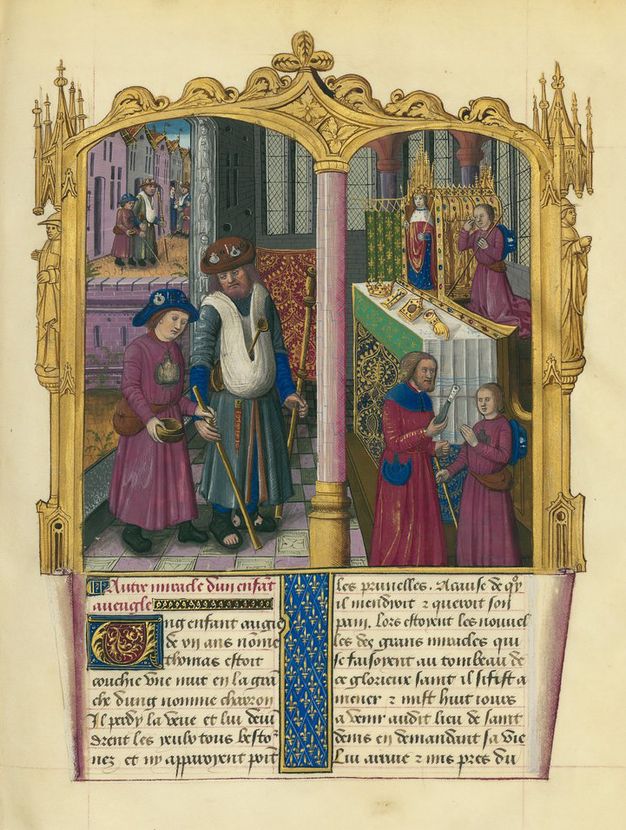 Autre miracle dun enfāt
aueugle
Ung enfant augie
de vii ans nōme
thomas estoit
couchie vne nuit en la grā
che dung nomme chauron
Il perdy la veue et lui deuī
drent les yeulx tous besto2
nez et ny apparoyent poīt
les prunelles. A cause de quoy
il mendioit ⁊ queroit son
pain. lors estoyent les nouuel
les des grans miracles qui
se faisoyent au tombeau de
ce glorieux saint il se fist a
mener ⁊ mist huit iours
a venir audit lieu de saint
denis en demandant sa vie
Lui arriue ⁊ mis pres du